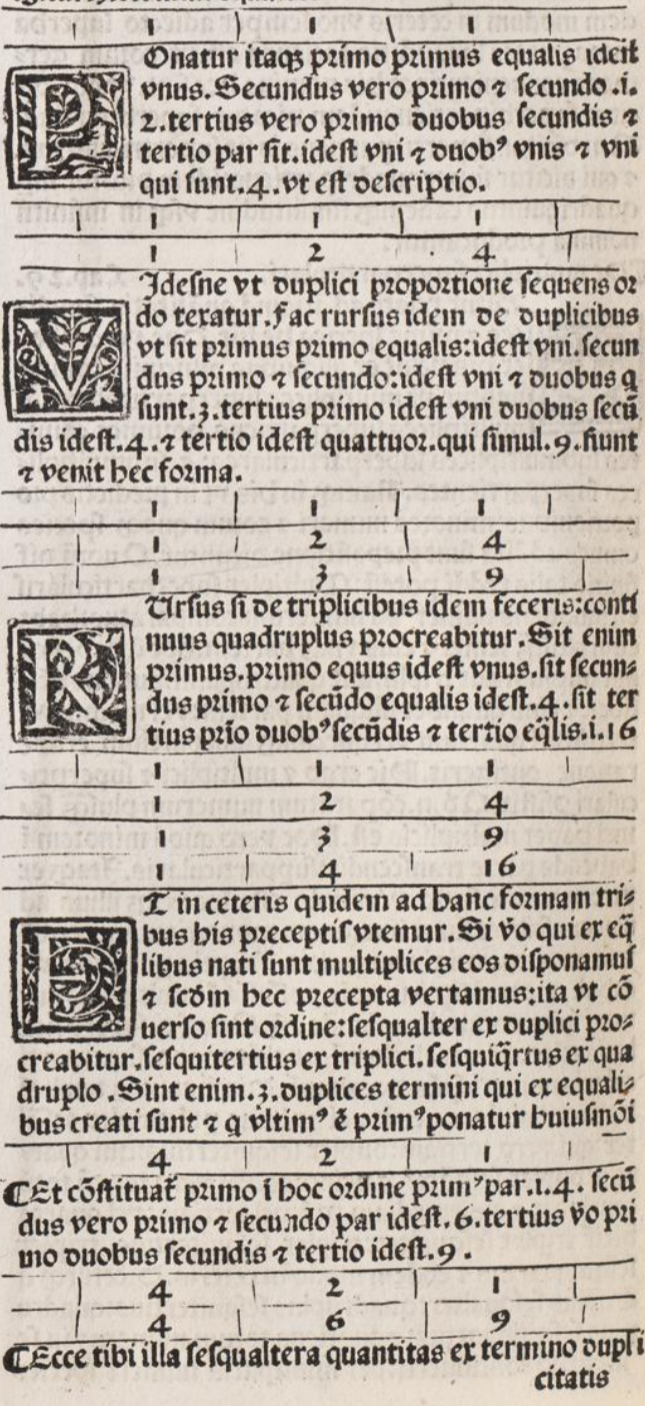 1 1 1
POnatur itaqꝫ primo primus equalis idest
vnus. Secundus vero primo ⁊ secundo .i.
2. tertius vero primo duobus secundis ⁊
tertio par sit. idest vni ⁊ duobꝰ vnis ⁊ vni
qui sunt .4. vt est descriptio.
1 1 1
1 2 4
VIdesne vt duplici proportione sequens or
do texatur. fac rursus idem de duplicibus
vt sit primus primo equalis: idest vni. secun
dus primo ⁊ secundo: idest vni ⁊ duobus q
sunt .3. tertius primo idest vni duobus secū
dis idest .4. ⁊ tertio idest quattuor. qui simul .9. fiunt
⁊ venit hec forma.
1 1 1
1 2 4
1 3 9
RUrsus si de triplicibus idem feceris: conti
nuus quadruplus procreabitur. Sit enim
primus. primo equus idest vnus. sit secun⸗
dus primo ⁊ secūdo equalis idest .4. sit ter
tius prīo duobꝰ secūdis ⁊ tertio eq̄lis .i. 16
1 1 1
1 2 4
1 3 9
1 4 16
ET in ceteris quidem ad hanc formam tri⸗
bus his preceptis vtemur. Si v̄o qui ex eq̄
libus nati sunt multiplices eos disponamus
⁊ scd̄m hec precepta vertamus: ita vt cō
uerso sint ordine: sesqualter ex duplici pro⸗
creabitur. sesquitertius ex triplici. sesquiq̄rtus ex qua
druplo. Sint enim .3. duplices termini qui ex equali⸗
bus creati sunt ⁊ q vltimꝰ ē primꝰ ponatur huiusmōi
4 2 1
¶Et cōstituat̄ primo ī hoc ordine primꝰ par .1. 4. secū
dus vero primo ⁊ secundo par idest .6. tertius v̄o pri
mo duobus secundis ⁊ tertio idest .9.
4 2 1
4 6 9
¶Ecce tibi illa sesqualtera quantitas ex termino dupli
citatis